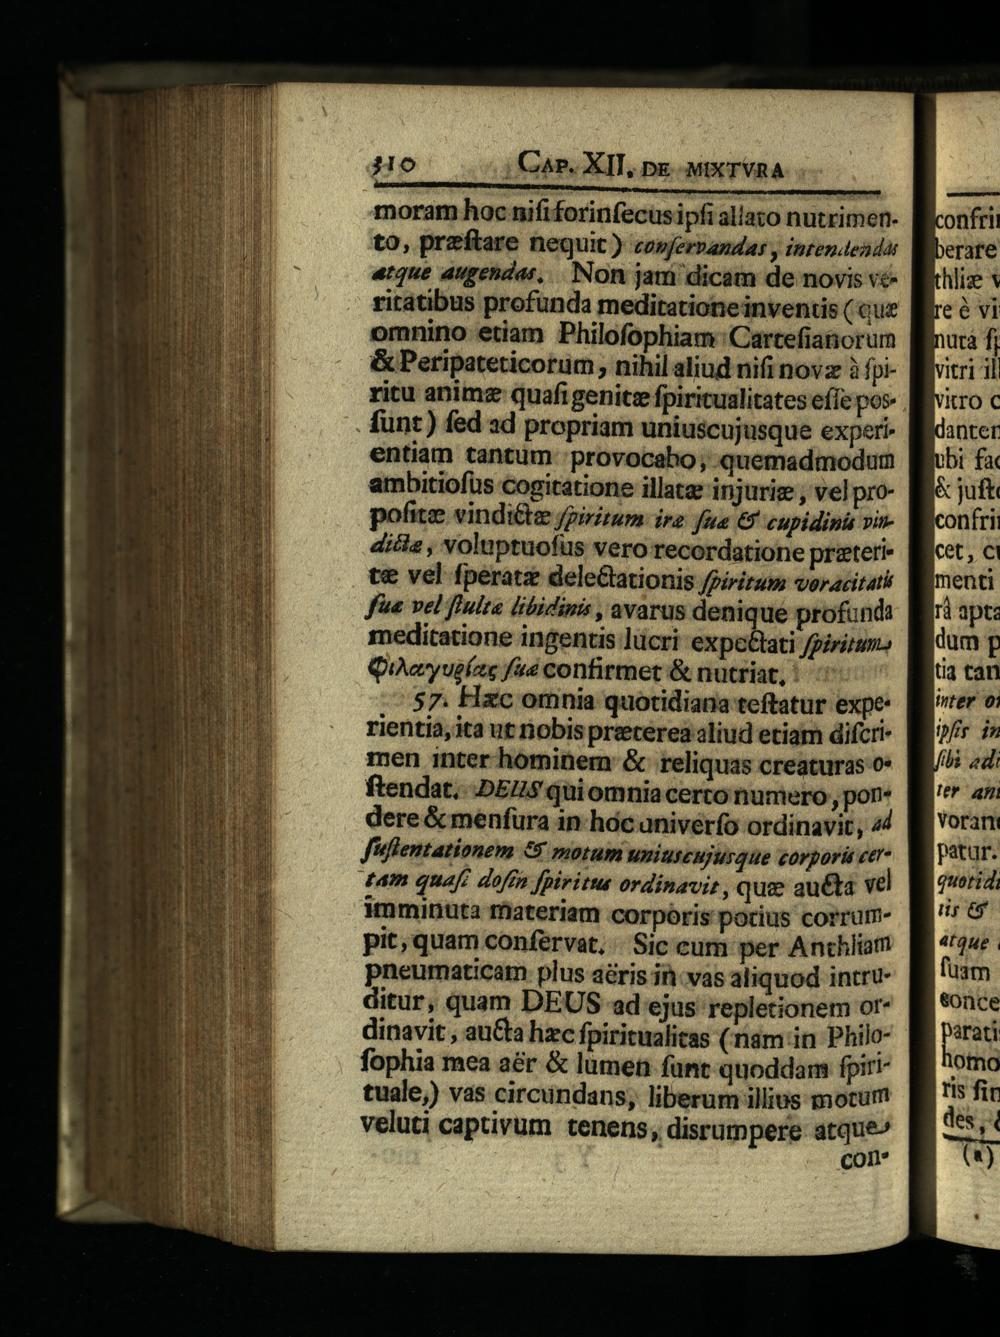 310 CAP. XII. DE MIXTVRA
moram hoc niſi forinſecus ipſi allato nutrimen-
to, præſtare nequit) conſervandas, intendendas
atque augendas. Non jam dicam de novis ve-
ritatibus profunda meditatione inventis (quæ
omnino etiam Philoſophiam Carteſianorum
& Peripateticorum, nihil aliud niſi novæ à ſpi-
ritu animæ quaſi genitæ ſpiritualitates eſſe pos-
ſunt) ſed ad propriam uniuscujusque experi-
entiam tantum provocabo, quemadmodum
ambitioſus cogitatione illatæ injuriæ, vel pro-
poſitæ vindictæ ſpiritum iræ ſuæ & cupidinis vin-
dictæ, voluptuoſus vero recordatione præteri-
tæ vel ſperatæ delectationis ſpiritum voracitatis
ſuæ vel ſtultæ libidinis, avarus denique profunda
meditatione ingentis lucri expectati ſpiritum
φιλαγυρίας ſuæ confirmet & nutriat.
57. Hæc omnia quotidiana teſtatur expe-
rientia, ita ut nobis præterea aliud etiam diſcri-
men inter hominem & reliquas creaturas o-
ſtendat. DEUS qui omnia certo numero, pon-
dere & menſura in hoc univerſo ordinavit, ad
ſuſtentationem & motum uniuscujusque corporis cer-
tam quaſi doſin ſpiritus ordinavit, quæ aucta vel
imminuta materiam corporis potius corrum-
pit, quam conſervat. Sic cum per Anthliam
pneumaticam plus aëris in vas aliquod intru-
ditur, quam DEUS ad ejus repletionem or-
dinavit, aucta hæc ſpiritualitas (nam in Philo-
ſophia mea aër & lumen ſunt quoddam ſpiri-
tuale,) vas circundans, liberum illius motum
veluti captivum tenens, disrumpere atque
con-
confrin
berare
thliæ v
re è vi
nuta ſp
vitri ill
vitro c
danten
ubi fac
& juſto
confrin
cet, cu
menti
râ apta
dum p
tia tan
inter o
ipſis in
ſibi adi
ter ani
voran
patur.
quotidi
tis &
atque
ſuam
conce
parati
homo
ris ſin
des, &
(a)